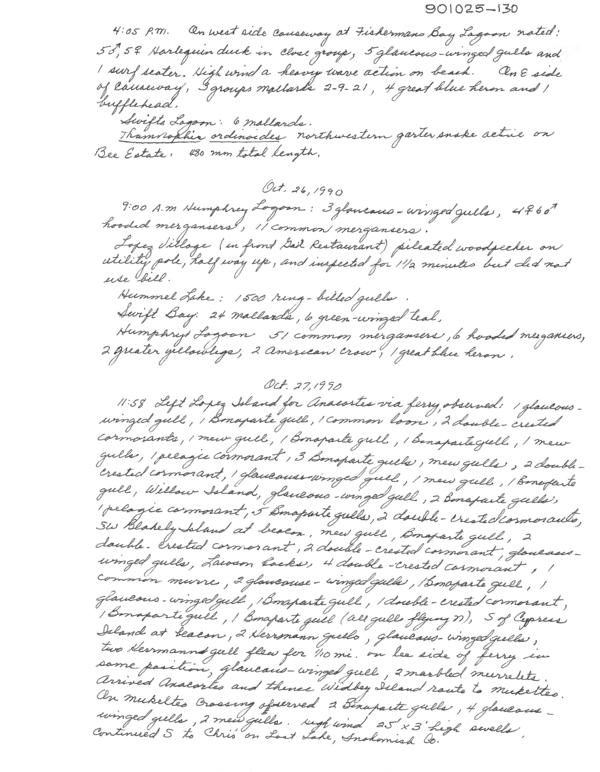 901025-130
4:05 P.M. On west side causeway at Fishermans Bay Lagoon noted:
5♂, 5♀ Harlequin duck in close group, 5 glaucous-winged gulls and
1 surf scoter. High wind & heavy wave action on beach. On E side
of causeway, 3 groups mallards 2-9-21, 4 great blue heron and 1
bufflehead.
Swifts Lagoon: 6 mallards.
Thamnophis ordinoides northwestern garter snake active on
Bee Estate. mm total length.
Oct. 26, 1990
9:00 A.M Humphrey Lagoon: 3 glaucous-winged gulls, 4♀ 6♂
hooded mergansers, 11 common mergansers.
Lopez Village (in front Gail Restaurant) pileated woodpecker on
utility pole, half way up, and inspected for 1½ minutes but did not
use bill.
Hummel Lake: 1500 ring-billed gulls.
Swift Bay: 24 mallards, 6 green-winged teal.
Humphrey Lagoon 51 common mergansers, 6 hooded mergansers,
2 greater yellowlegs, 2 American crow, 1 great blue heron.
Oct. 27, 1990
11:58 Left Lopez Island for Anacortes via ferry, observed: 1 glaucous-
winged gull, 1 Bonaparte gull, 1 common loon, 2 double-crested
cormorants, 1 mew gull, 1 Bonaparte gull, 1 Bonaparte gull, 1 mew
gulls, 1 pelagic cormorant, 3 Bonaparte gulls, mew gulls, 2 double-
crested cormorant, 1 glaucous-winged gull, 1 mew gull, 1 Bonaparte
gull, Willow Island, glaucous-winged gull, 2 Bonaparte gulls,
1 pelagic cormorant, 5 Bonaparte gulls, 2 double-crested cormorants,
SW Blakely Island at beacon, mew gull, Bonaparte gull, 2
double-crested cormorant, 2 double-crested cormorant, glaucous-
winged gulls, Lawson Rocks, 4 double-crested cormorant, 1
common murre, 2 glaucouse-winged gulls, 1 Bonaparte gull, 1
glaucous-winged gull, 1 Bonaparte gull, 1 double-crested cormorant,
1 Bonaparte gull, 1 Bonaparte gull (all gulls flying N), S of Cypress
Island at beacon, 2 Herrmann gulls, glaucous-winged gulls,
two Herrmanns gull flew for 1/10 mi. on lee side of ferry in
same position, glaucous-winged gull, 2 marbled murrelets.
Arrived Anacortes and thence Widbey Island route to Mukelteo.
On Mukelteo Crossing observed 2 Bonaparte gulls, 4 glaucous-
winged gulls, 2 mew gulls. High wind 25' x 3' high swells.
Continued S to Chris' on Lost Lake, Snohomish Co.